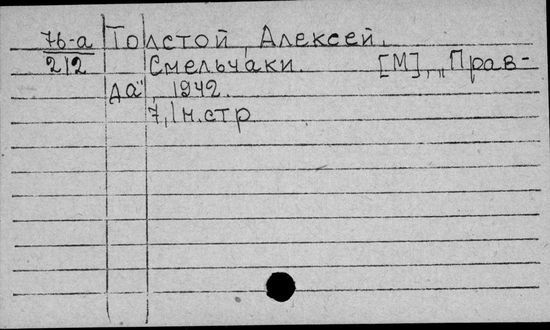 76-а Толстой, Алексей.
212 Смельчаки. [М], „Прав-
да", 1942.
7,1н.стр